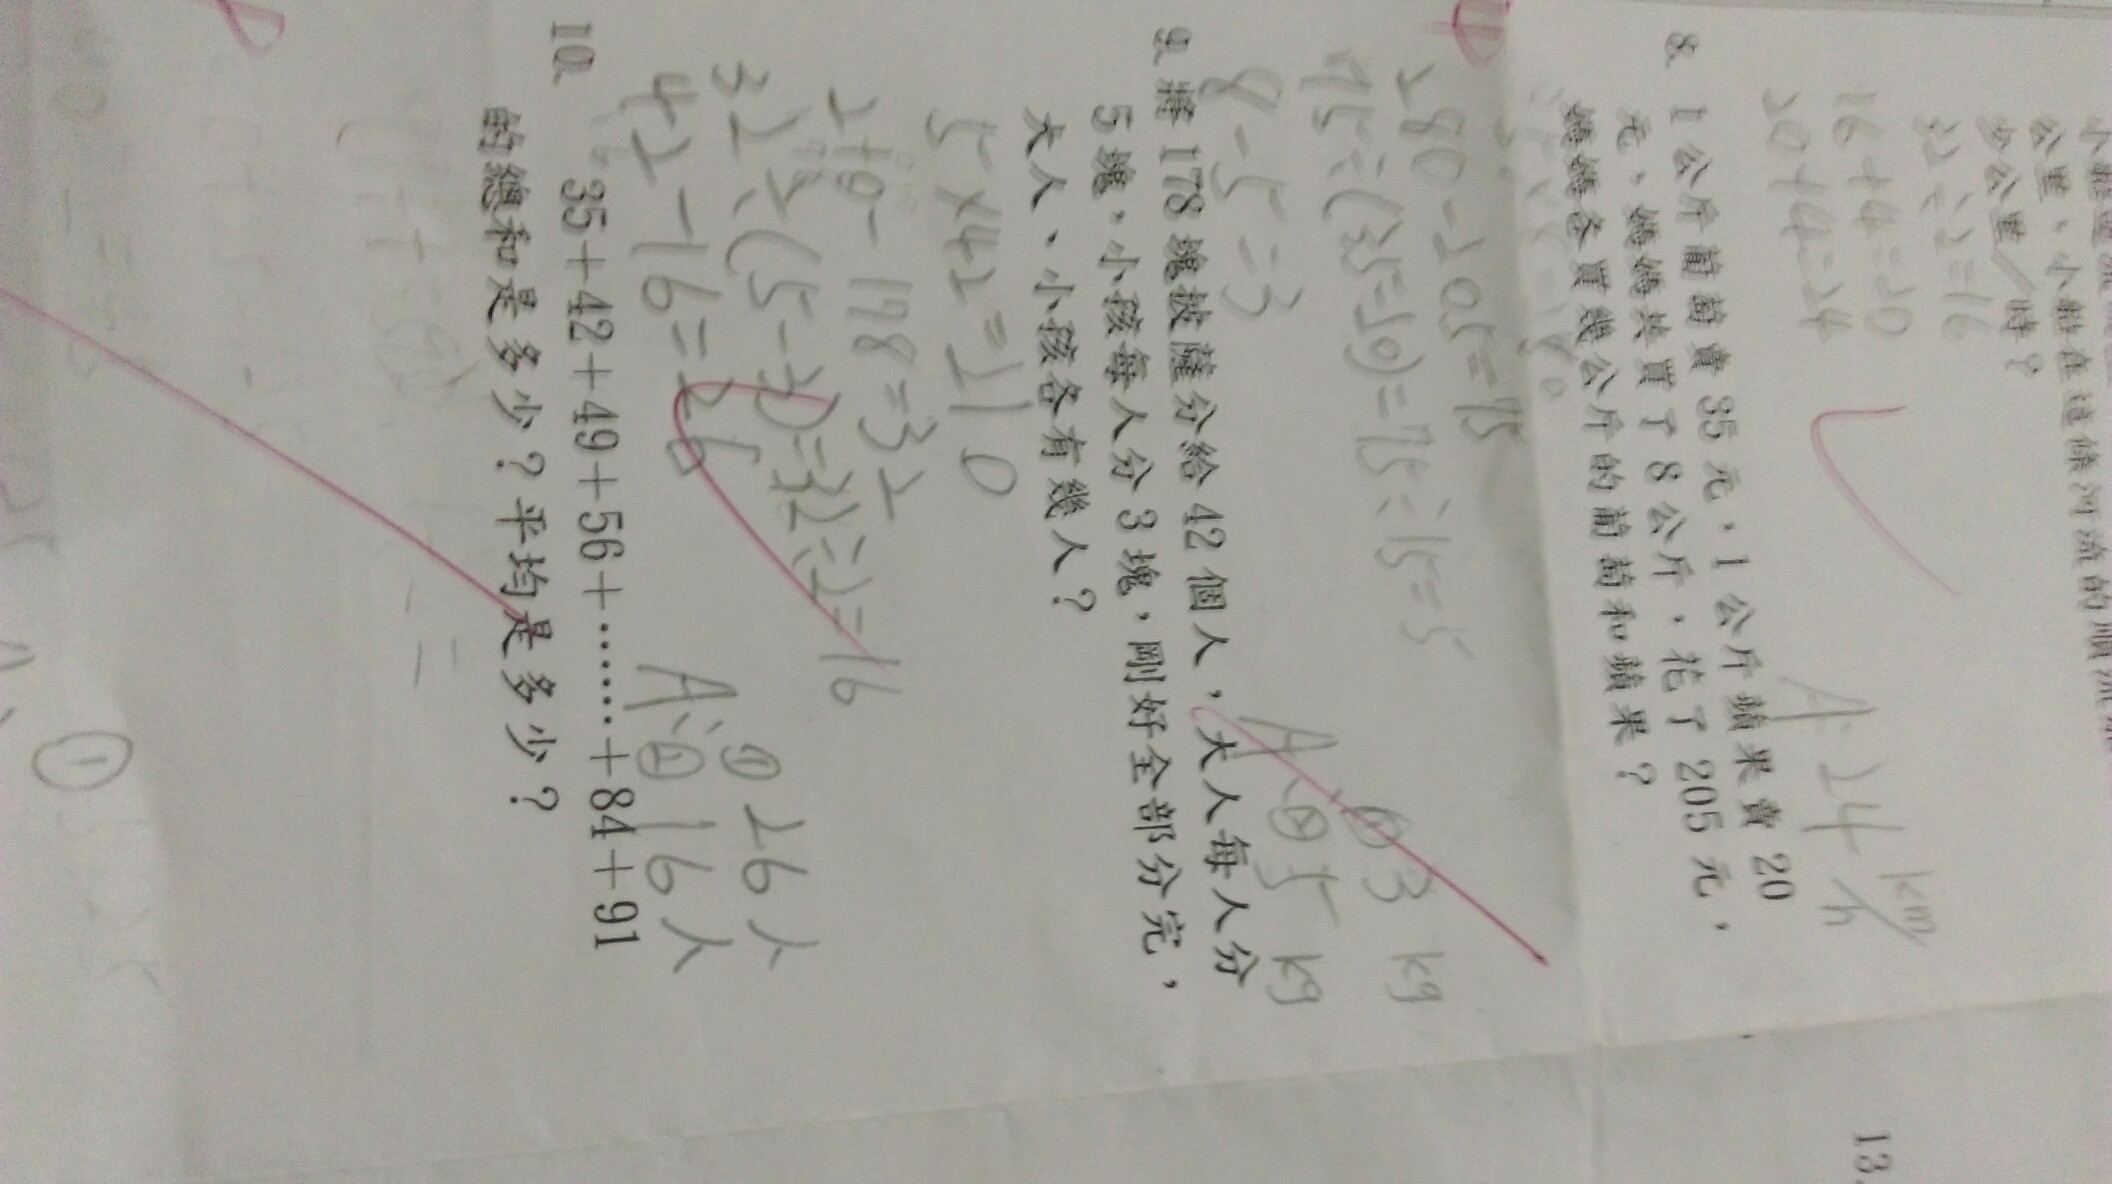 公里，小船在這條河流的順流
少公里／時？
32÷2=16
16+4=20
20+4=24
A:24 km/h
8. 1公斤葡萄賣35元，1公斤蘋果賣20
元，媽媽共買了8公斤，花了205元，
媽媽各買幾公斤的葡萄和蘋果？
280-205=75
75÷(35-20)=75÷15=5
8-5=3
A:①3 kg
②5 kg
9. 將178塊披薩分給42個人，大人每人分
5塊，小孩每人分3塊，剛好全部分完，
大人、小孩各有幾人？
5×42=210
210-178=32
32÷(5-3)=32÷2=16
42-16=26
A:①26人
②16人
10. 35+42+49+56+……+84+91
的總和是多少？平均是多少？
①
13.